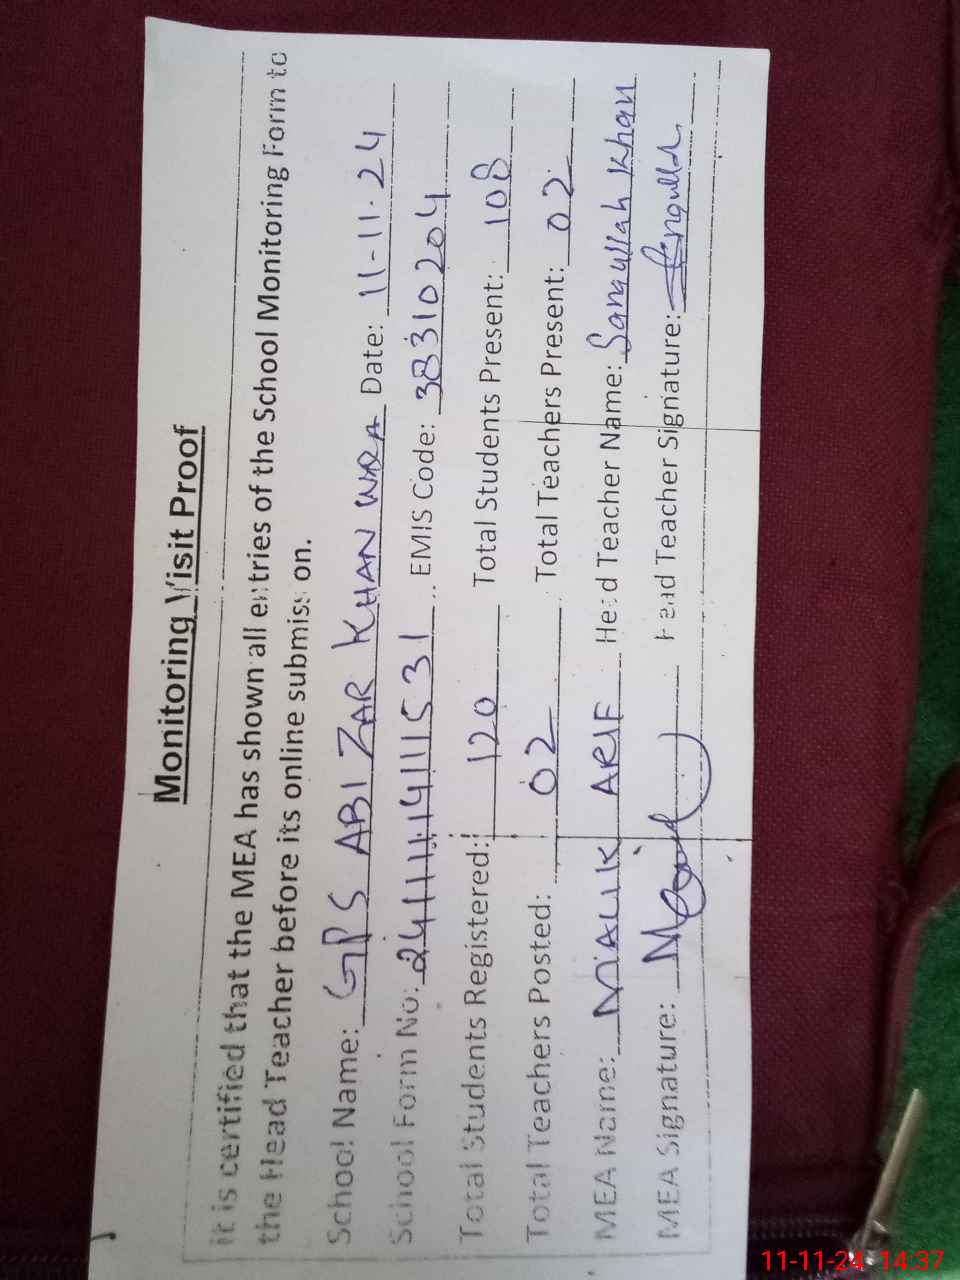 Monitoring Visit Proof
It is certified that the MEA has shown all entries of the School Monitoring Form to
the Head Teacher before its online submission.
School Name: GPS ABI ZAR KHAN WRA Date: 11-11-24
School Form No: EMIS Code: 38310204
Total Students Registered: 120 Total Students Present: 108
Total Teachers Posted: 02 Total Teachers Present: 02
MEA Name: MALIK ARIF Head Teacher Name: Sanaullah Khan
MEA Signature: Head Teacher Signature:
11-11-24 14:37